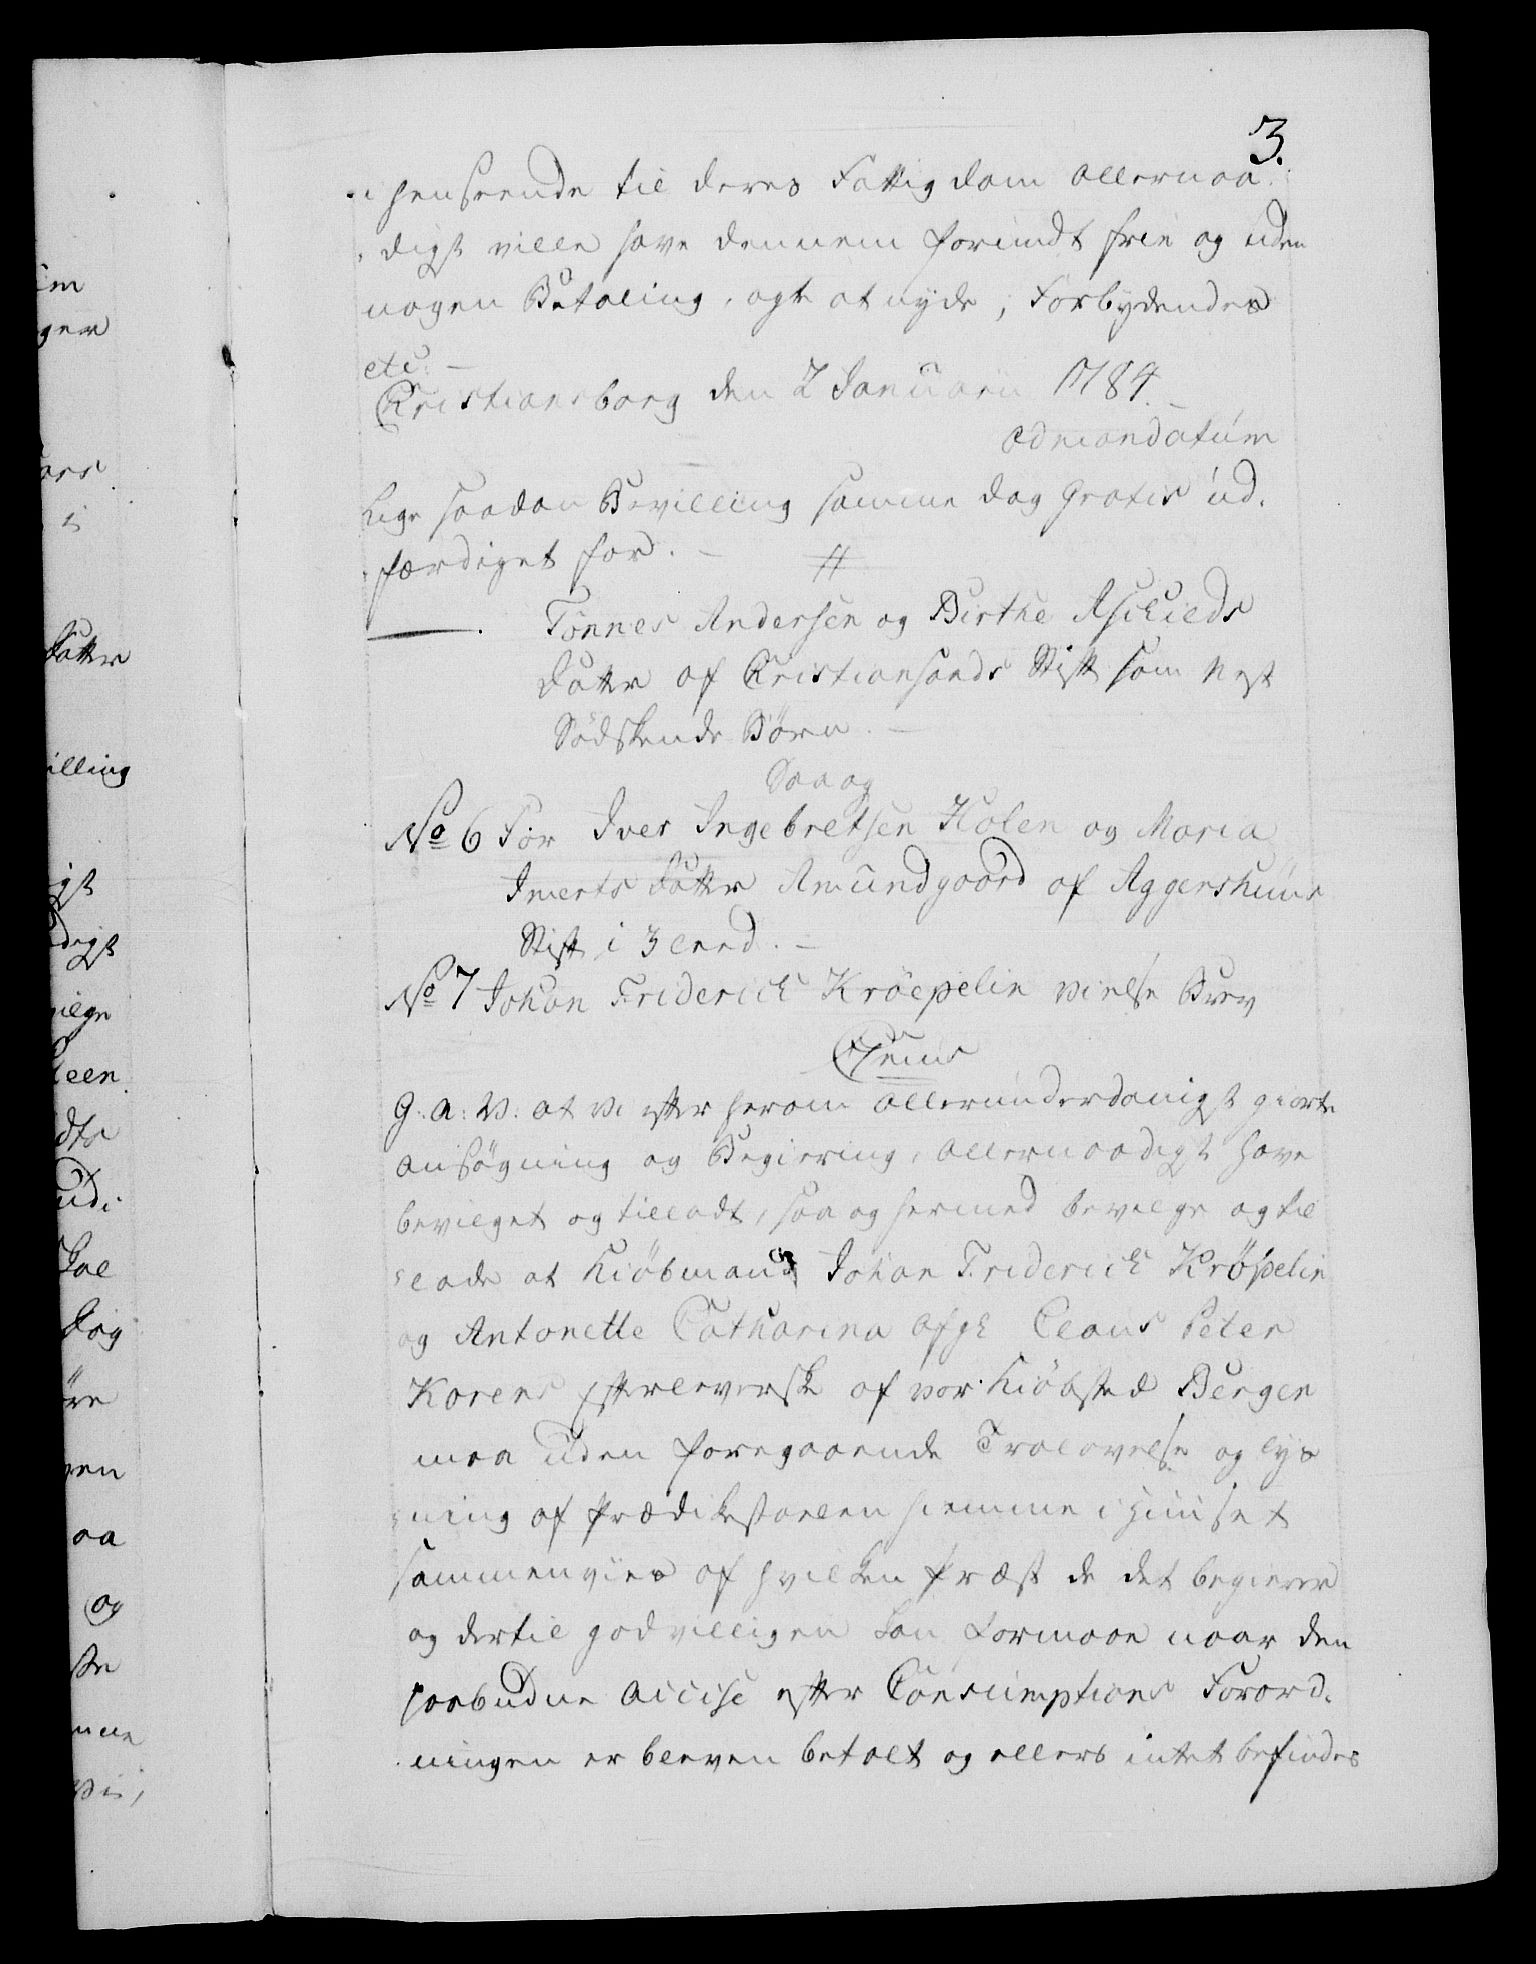 3.
i henseende til deres Fattigdom allernaa-
digst ville have dennem forundt frie og uden
nogen Betaling, agte at nyde, Forbydendes
etc: –
Christiansborg den 2 Januarii 1784 –
ad mandatum
Lige saadan Bevilling samme dag Gratis ud-
færdiget for. – //
Tønnes Andersen og Birthe Aschieds
datter af Christiansands Stift som Nest
Södskende Börn. –
Saa og
No 6 For Iver Ingebretsen Holen og Maria
Imerts datter Amundgaard af Aggershuus
Stift i 3 leed. –
No 7 Johan Friderich Kröepelin vielse Brev
hiemme
G: A: V: at Vi efter herom allerunderdanigst giorte
ansögning og Begiering, allernaadigst have
bevilget og tilladt, saa og hermed bevilge og til
lade at Kiöbmand Johan Friderich Kröpelin
og Antonette Catharina afgl Claus Peter
Korens Efterleverske af vor Kiöbsted Bergen
maa uden foregaaende Trolovelse og lys
ning af Prædikestoelen hiemme i Huuset
sammenvies af hvilken Præst de det begierer
og dertil godvilligen kan formaae naar den
paabudne accise efter Consumptions Forord-
ningen er bleven betalt og ellers intet befindes
im
ger
ors
i
datter
illing
gst
digst
vilge
leen
dts
udi
skal
dog
öre
ven
aa
og
ste
vii,